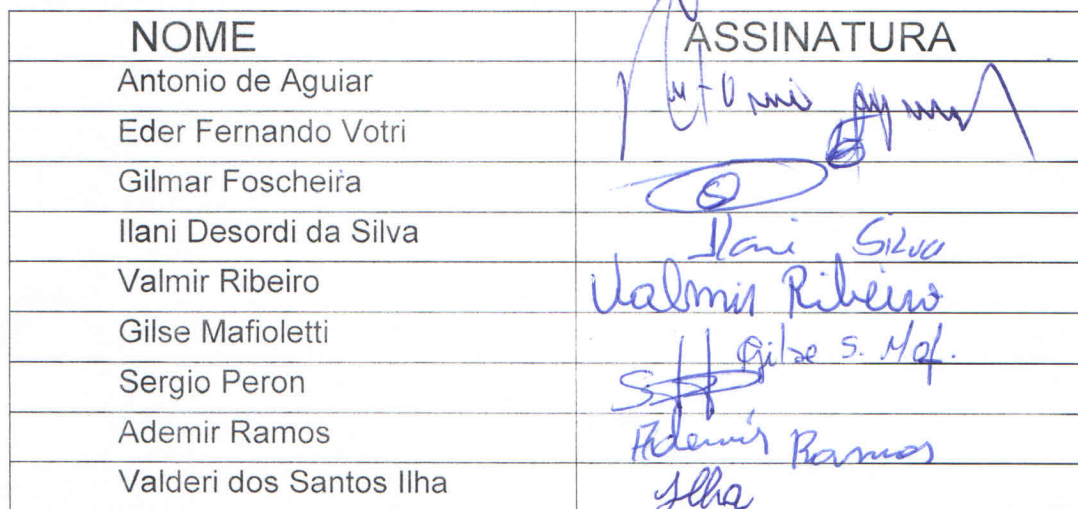 NOME ASSINATURA
Antonio de Aguiar
Eder Fernando Votri
Gilmar Foscheira
Ilani Desordi da Silva Ilani Silva
Valmir Ribeiro Valmir Ribeiro
Gilse Mafioletti Gilse S. Maf.
Sergio Peron
Ademir Ramos Ademir Ramos
Valderi dos Santos Ilha Ilha